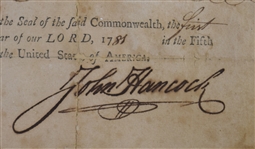 the Seal of the said Commonwealth, the first
ar of our LORD, 1781 in the Fifth
the United States of AMERICA.
John Hancock